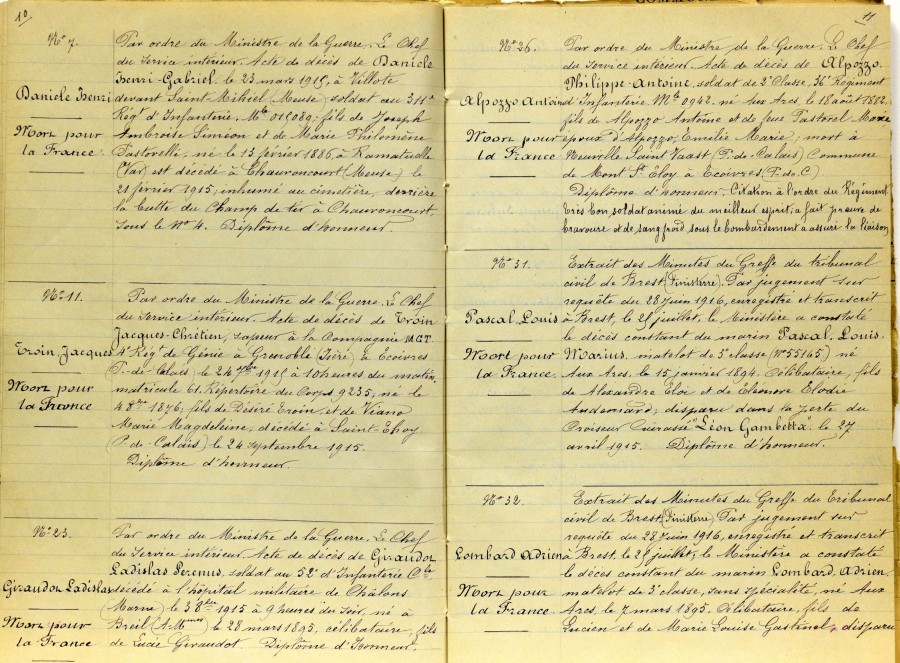 10
N° 7.
Daniele Henri
Mort pour
la France
Par ordre du Ministre de la Guerre. Le Chef
du Service intérieur. Acte de décès de Daniele
Henri-Gabriel. le 23 mars 1915, à Villote
devant Saint-Mihiel (Meuse), soldat au 311e
Régt d'Infanterie, Mle 015089; fils de Joseph
Ambroise Siméon et de Marie Philomène
Pastorelli, né le 13 février 1886, à Ramatuelle
(Var) est décédé à Chauvoncourt (Meuse) le
21 février 1915, inhumé au cimetière, derrière
la butte du Champ de tir à Chauvoncourt,
sous le N° 4. Diplôme d'honneur.
N° 11.
Troin Jacques
Mort pour
la France
Par ordre du Ministre de la Guerre. Le Chef
du Service intérieur. Acte de décès de Troin
Jacques-Chrétien, sapeur à la Compagnie
4e Régt de Génie à Grenoble (Isère) à Ecoivres
P.-de-Calais) le 24 7bre 1915 à 10 heures du matin,
matricule 61. Répertoire du Corps 9235, né le
4 8bre 1876; fils de Désiré Troin et de Viano
Marie Magdeleine, décédé à Saint-Eloy
P.-de-Calais) le 24 septembre 1915.
Diplôme d'honneur.
N° 23.
Giraudot Ladislas
Mort pour
la France
Par ordre du Ministre de la Guerre. Le Chef
du Service intérieur. Acte de décès de Giraudot
Ladislas, soldat au 52e d'Infanterie
décédé à l'hôpital militaire de Châlons
(Marne) le 3 8bre 1915 à 9 heures du soir, né à
Breil (A. Mmes) le 28 mars 1895, célibataire, fils
de Lucie Giraudot. Diplôme d'honneur.
11
N° 26.
Alpozzo Antoine
Mort pour
la France
Par ordre du Ministre de la Guerre. Le Chef
du Service intérieur. Acte de décès de Alpozzo,
Philippe-Antoine, soldat de 2e Classe, 36e Régiment
d'Infanterie Mle 0942, né aux Arcs, le 18 août 1882,
fils de Alpozzo Antoine et de feue Pastorel Marie
époux d'Alpozzo, Emilie Marie, mort à
Neuville Saint Vaast (P. de Calais) Commune
de Mont St Eloy à Ecoivres (P. de C)
Diplôme d'honneur. Citation à l'ordre du Régiment
très bon soldat animé du meilleur esprit, a fait preuve de
bravoure et de sang froid sous le bombardement a assuré la liaison
N° 31.
Pascal Louis
Mort pour
la France
Extrait des Minutes du Greffe du tribunal
civil de Brest (Finistère). Par jugement sur
requête du 28 juin 1916, enregistré et transcrit
à Brest, le 25 juillet, le Ministère a constaté
le décès constant du marin Pascal, Louis,
Marius, matelot de 3e classe (N° 55165) né
Aux Arcs, le 15 janvier 1894. Célibataire, fils
de Alexandre Eloi et de Eléonore Elodie
Audemard; disparu dans la perte du
Croiseur Cuirassé "Léon Gambetta" le 27
avril 1915. Diplôme d'honneur.
N° 32.
Lombard Adrien
Mort pour
la France
Extrait des Minutes du Greffe du Tribunal
civil de Brest (Finistère) Par jugement sur
requête du 28 juin 1916, enregistré et transcrit
à Brest, le 25 juillet, le Ministère a constaté
le décès constant du marin Lombard, Adrien,
matelot de 3e classe, sans spécialité, né Aux
Arcs, le 7 mars 1895. Célibataire, fils de
Lucien et de Marie Louise Gastinel, disparu